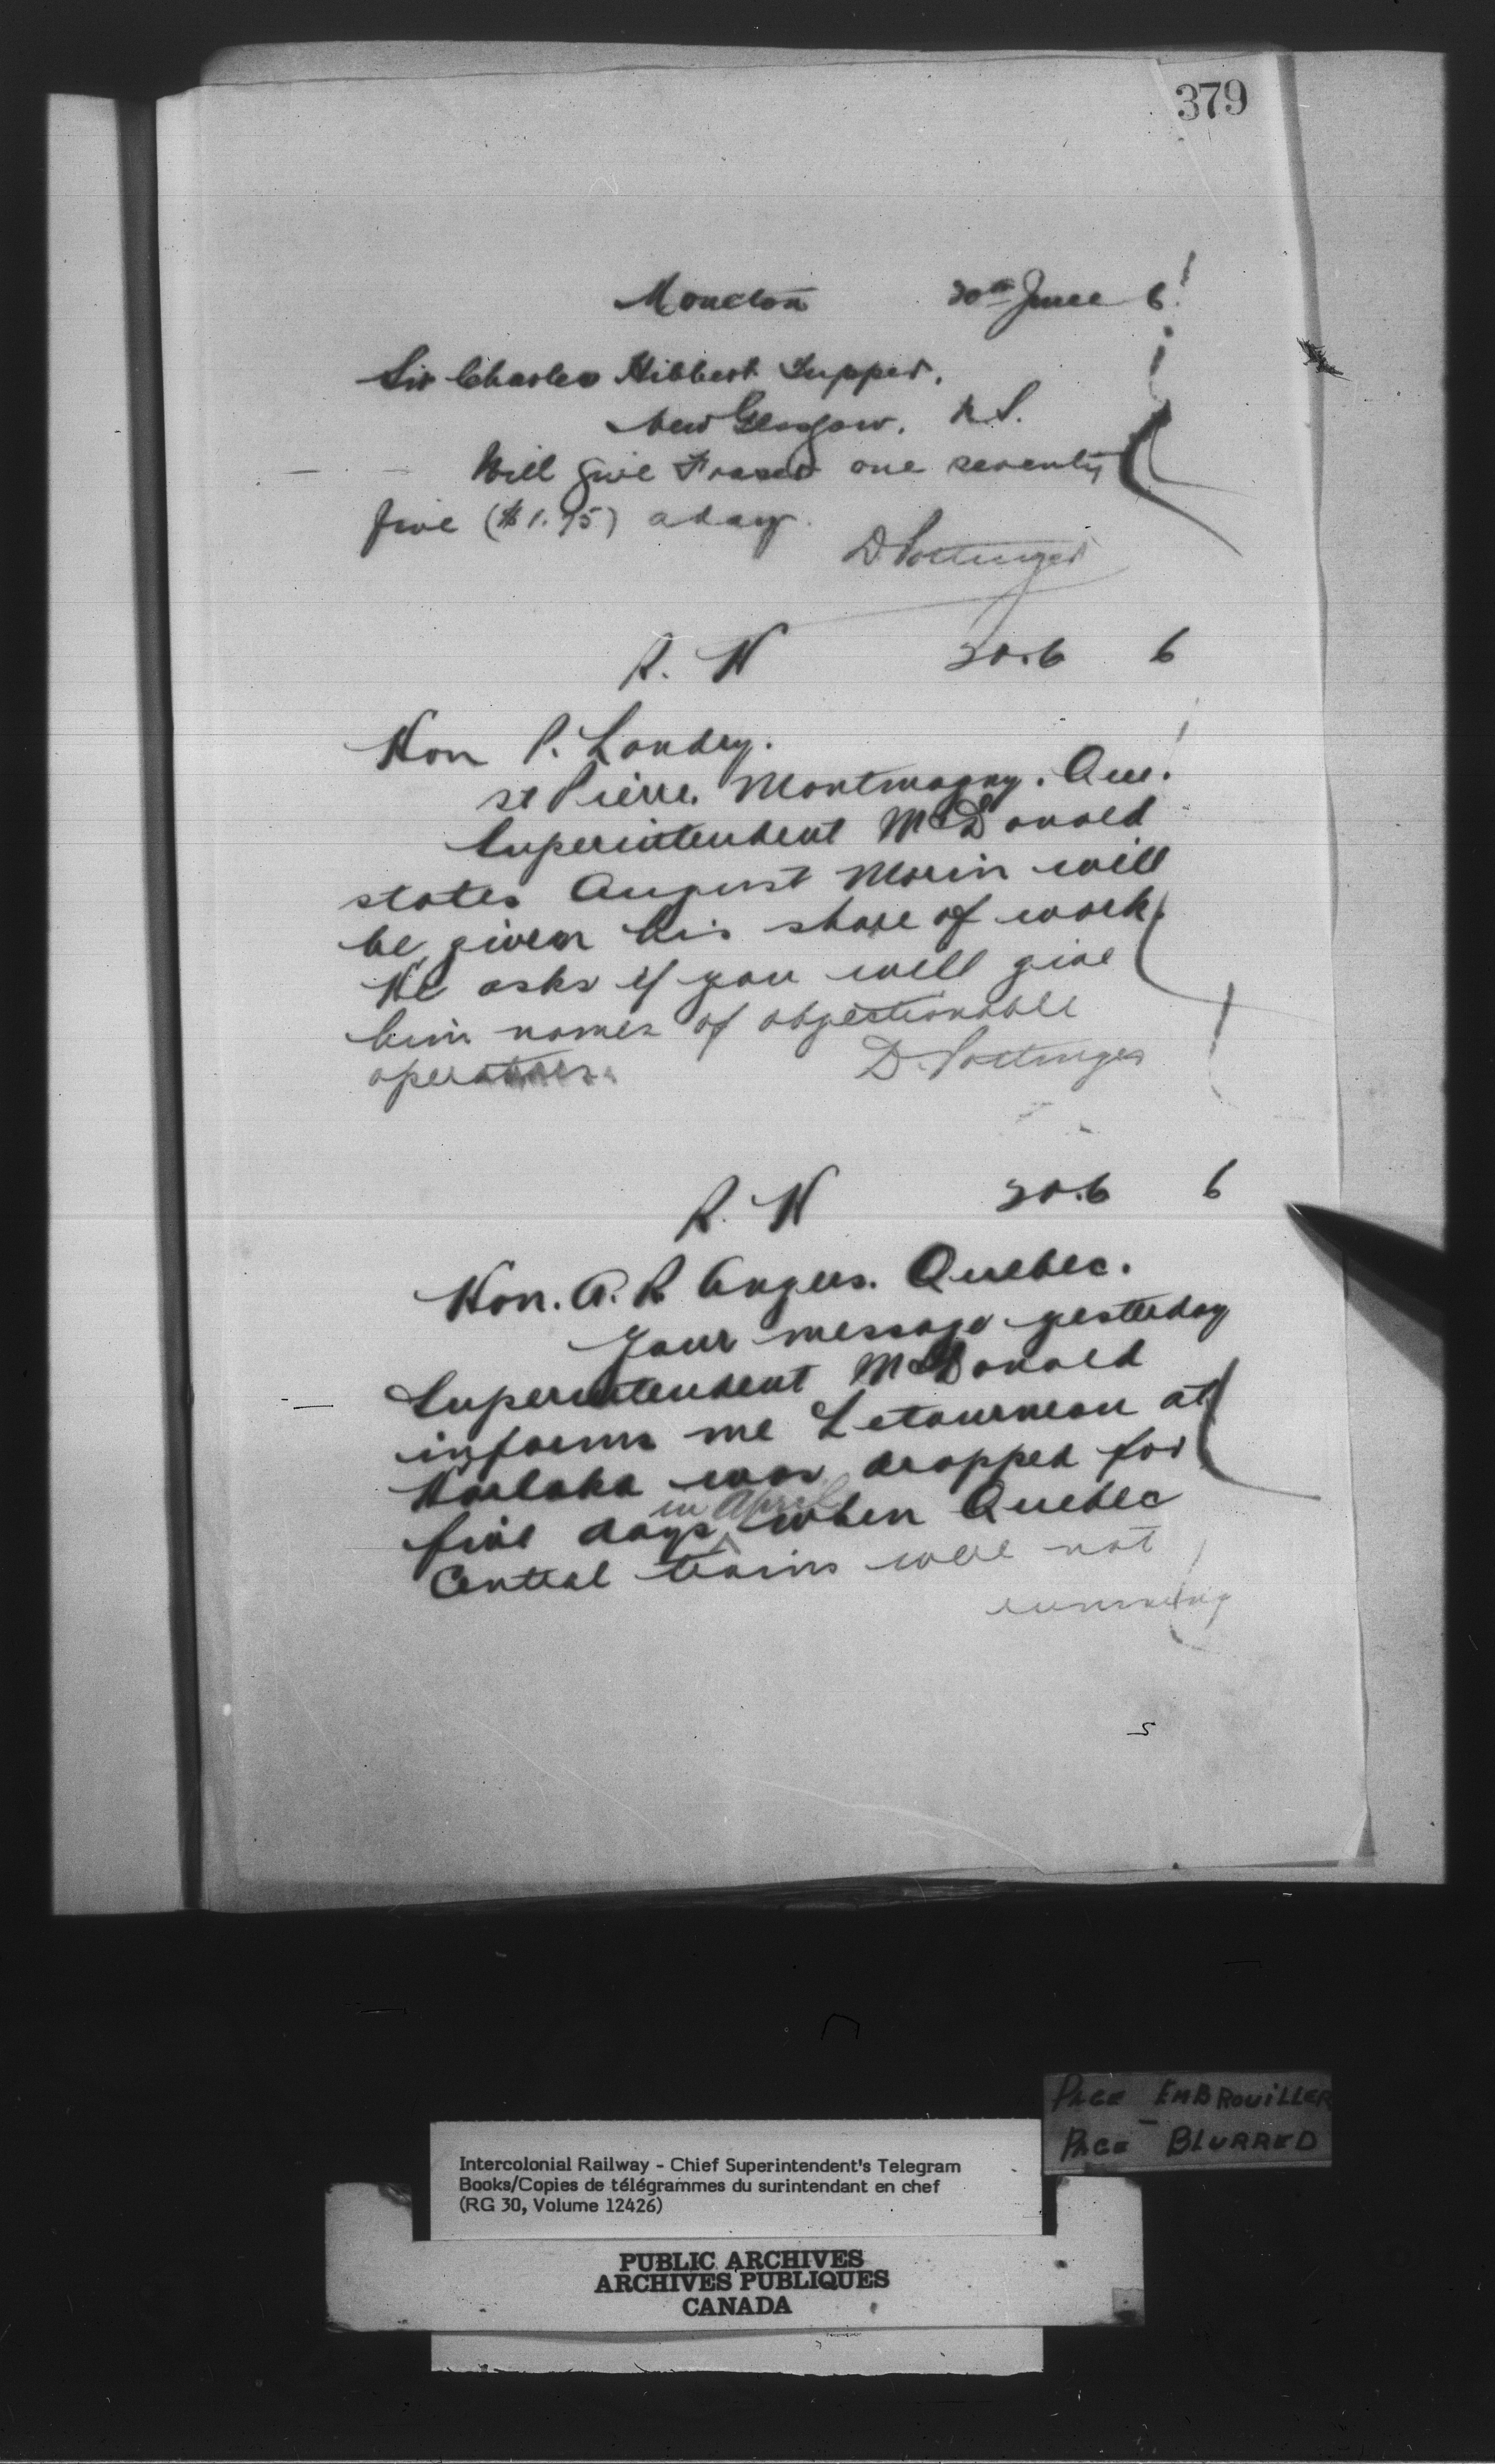 379
Moncton 30th June 6
Sir Charles Hibbert Tupper,
New Glasgow. N.S.
Will give Fraser one seventy
five ($1.75) a day.
D. Pottinger
R. N 30.6 6
Hon P. Landry.
St Pierre, Montmagny. Que.
Superintendent McDonald
states August Morin will
be given his share of work.
He asks if you will give
him names of objectionable
operators.
D. Pottinger
R. N 30.6 6
Hon. A. R. Angers. Quebec.
Your message yesterday
Superintendent McDonald
informs me Letourneau at
Harlaka was dropped for
five days in April when Quebec
Central trains were not
running
PAGE EMBROUILLER
PAGE BLURRED
Intercolonial Railway - Chief Superintendent's Telegram
Books/Copies de télégrammes du surintendant en chef
(RG 30, Volume 12426)
PUBLIC ARCHIVES
ARCHIVES PUBLIQUES
CANADA